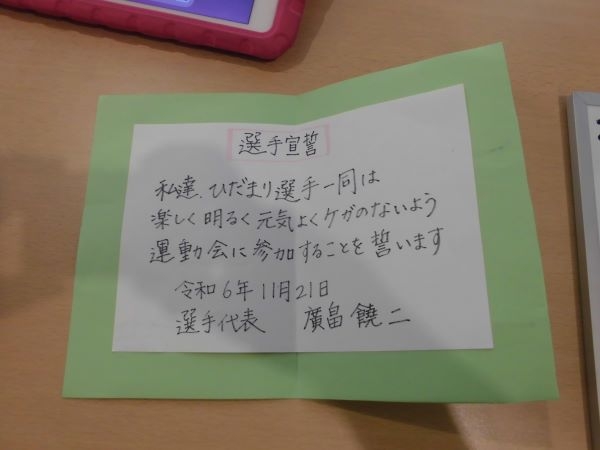 選手宣誓
私達、ひだまり選手一同は
楽しく明るく元気よくケガのないよう
運動会に参加することを誓います
令和6年11月21日
選手代表 廣畠饒二